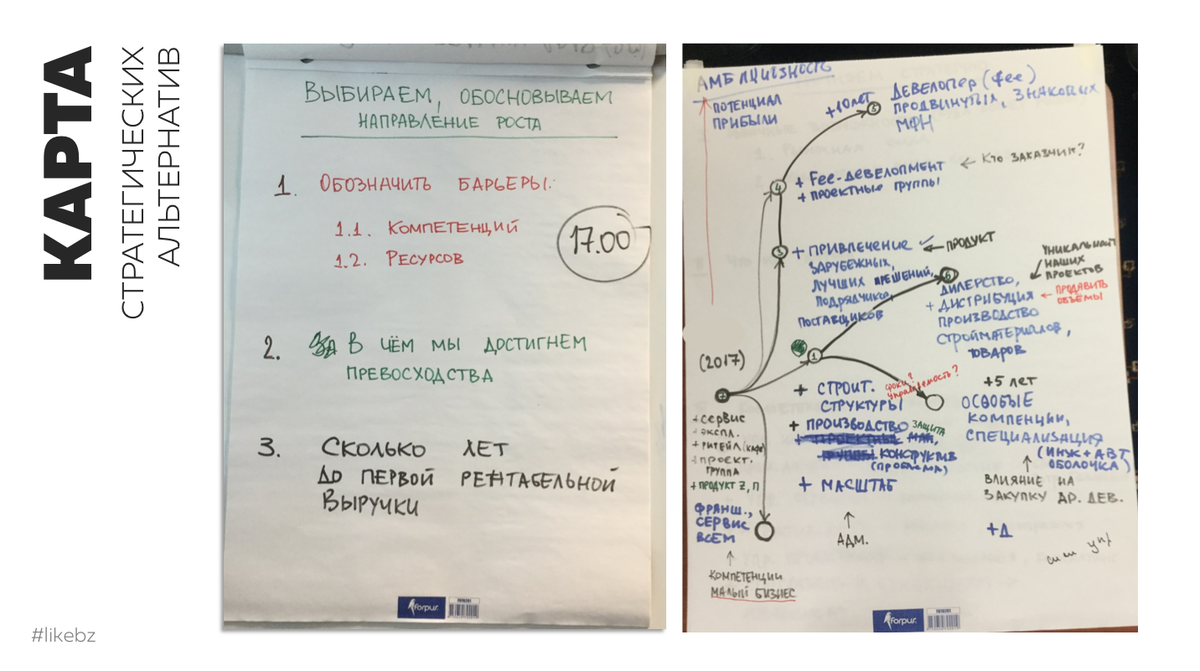 КАРТА
СТРАТЕГИЧЕСКИХ
АЛЬТЕРНАТИВ
#likebz
ВЫБИРАЕМ, ОБОСНОВЫВАЕМ
НАПРАВЛЕНИЕ РОСТА
1. ОБОЗНАЧИТЬ БАРЬЕРЫ:
1.1. КОМПЕТЕНЦИЙ
1.2. РЕСУРСОВ
17.00
2. В ЧЁМ МЫ ДОСТИГНЕМ
ПРЕВОСХОДСТВА
3. СКОЛЬКО ЛЕТ
ДО ПЕРВОЙ РЕНТАБЕЛЬНОЙ
ВЫРУЧКИ
forpus
АМБИЦИЕЗНОСТЬ
ПОТЕНЦИАЛ
ПРИБЫЛИ
+10 ЛЕТ
5
ДЕВЕЛОПЕР (Fee)
ПРОДВИНУТЫХ, ЗНАКОВЫХ
МФН
4
+ Fee-ДЕВЕЛОПМЕНТ
+ ПРОЕКТНЫЕ ГРУППЫ
← КТО ЗАКАЗЧИК?
3
+ ПРИВЛЕЧЕНИЕ
ЗАРУБЕЖНЫХ,
ЛУЧШИХ РЕШЕНИЙ,
ПОДРЯДЧИКОВ,
ПОСТАВЩИКОВ
← ПРОДУКТ
УНИКАЛЬНАЙ
НАШИХ
ПРОЕКТОВ
ДИЛЕРСТВО,
+ ДИСТРИБУЦИЯ
ПРОИЗВОДСТВО
СТРОЙМАТЕРИАЛОВ,
ТОВАРОВ
← ПРОДАВИТЬ
ОБЪЁМЫ
(2017)
+ СЕРВИС
+ ЭКСПЛ.
+ РИТЕЙЛ (КАФЕ)
+ ПРОЕКТ.
ГРУППА
+ ПРОДУКТ Z, П
1
+ СТРОИТ.
СТРУКТУРЫ
+ ПРОИЗВОДСТВО
ЗАЩИТА
КОНСТРУКТИВ
(ПРОБЛЕМА)
+ МАСШТАБ
↑
АДМ.
ФОКУС?
УПРАВЛЯЕМОСТЬ?
+5 ЛЕТ
ОСОБЫЕ
КОМПЕНЦИИ,
СПЕЦИАЛИЗАЦИЯ
(ИНЖ + АВТ
ОБОЛОЧКА)
↑
ВЛИЯНИЕ НА
ЗАКУПКУ ДР. ДЕВ.
+Д
ФРАНШ.,
СЕРВИС
ВСЕМ
↑
КОМПЕТЕНЦИИ
МАЛЫЙ БИЗНЕС
forpus